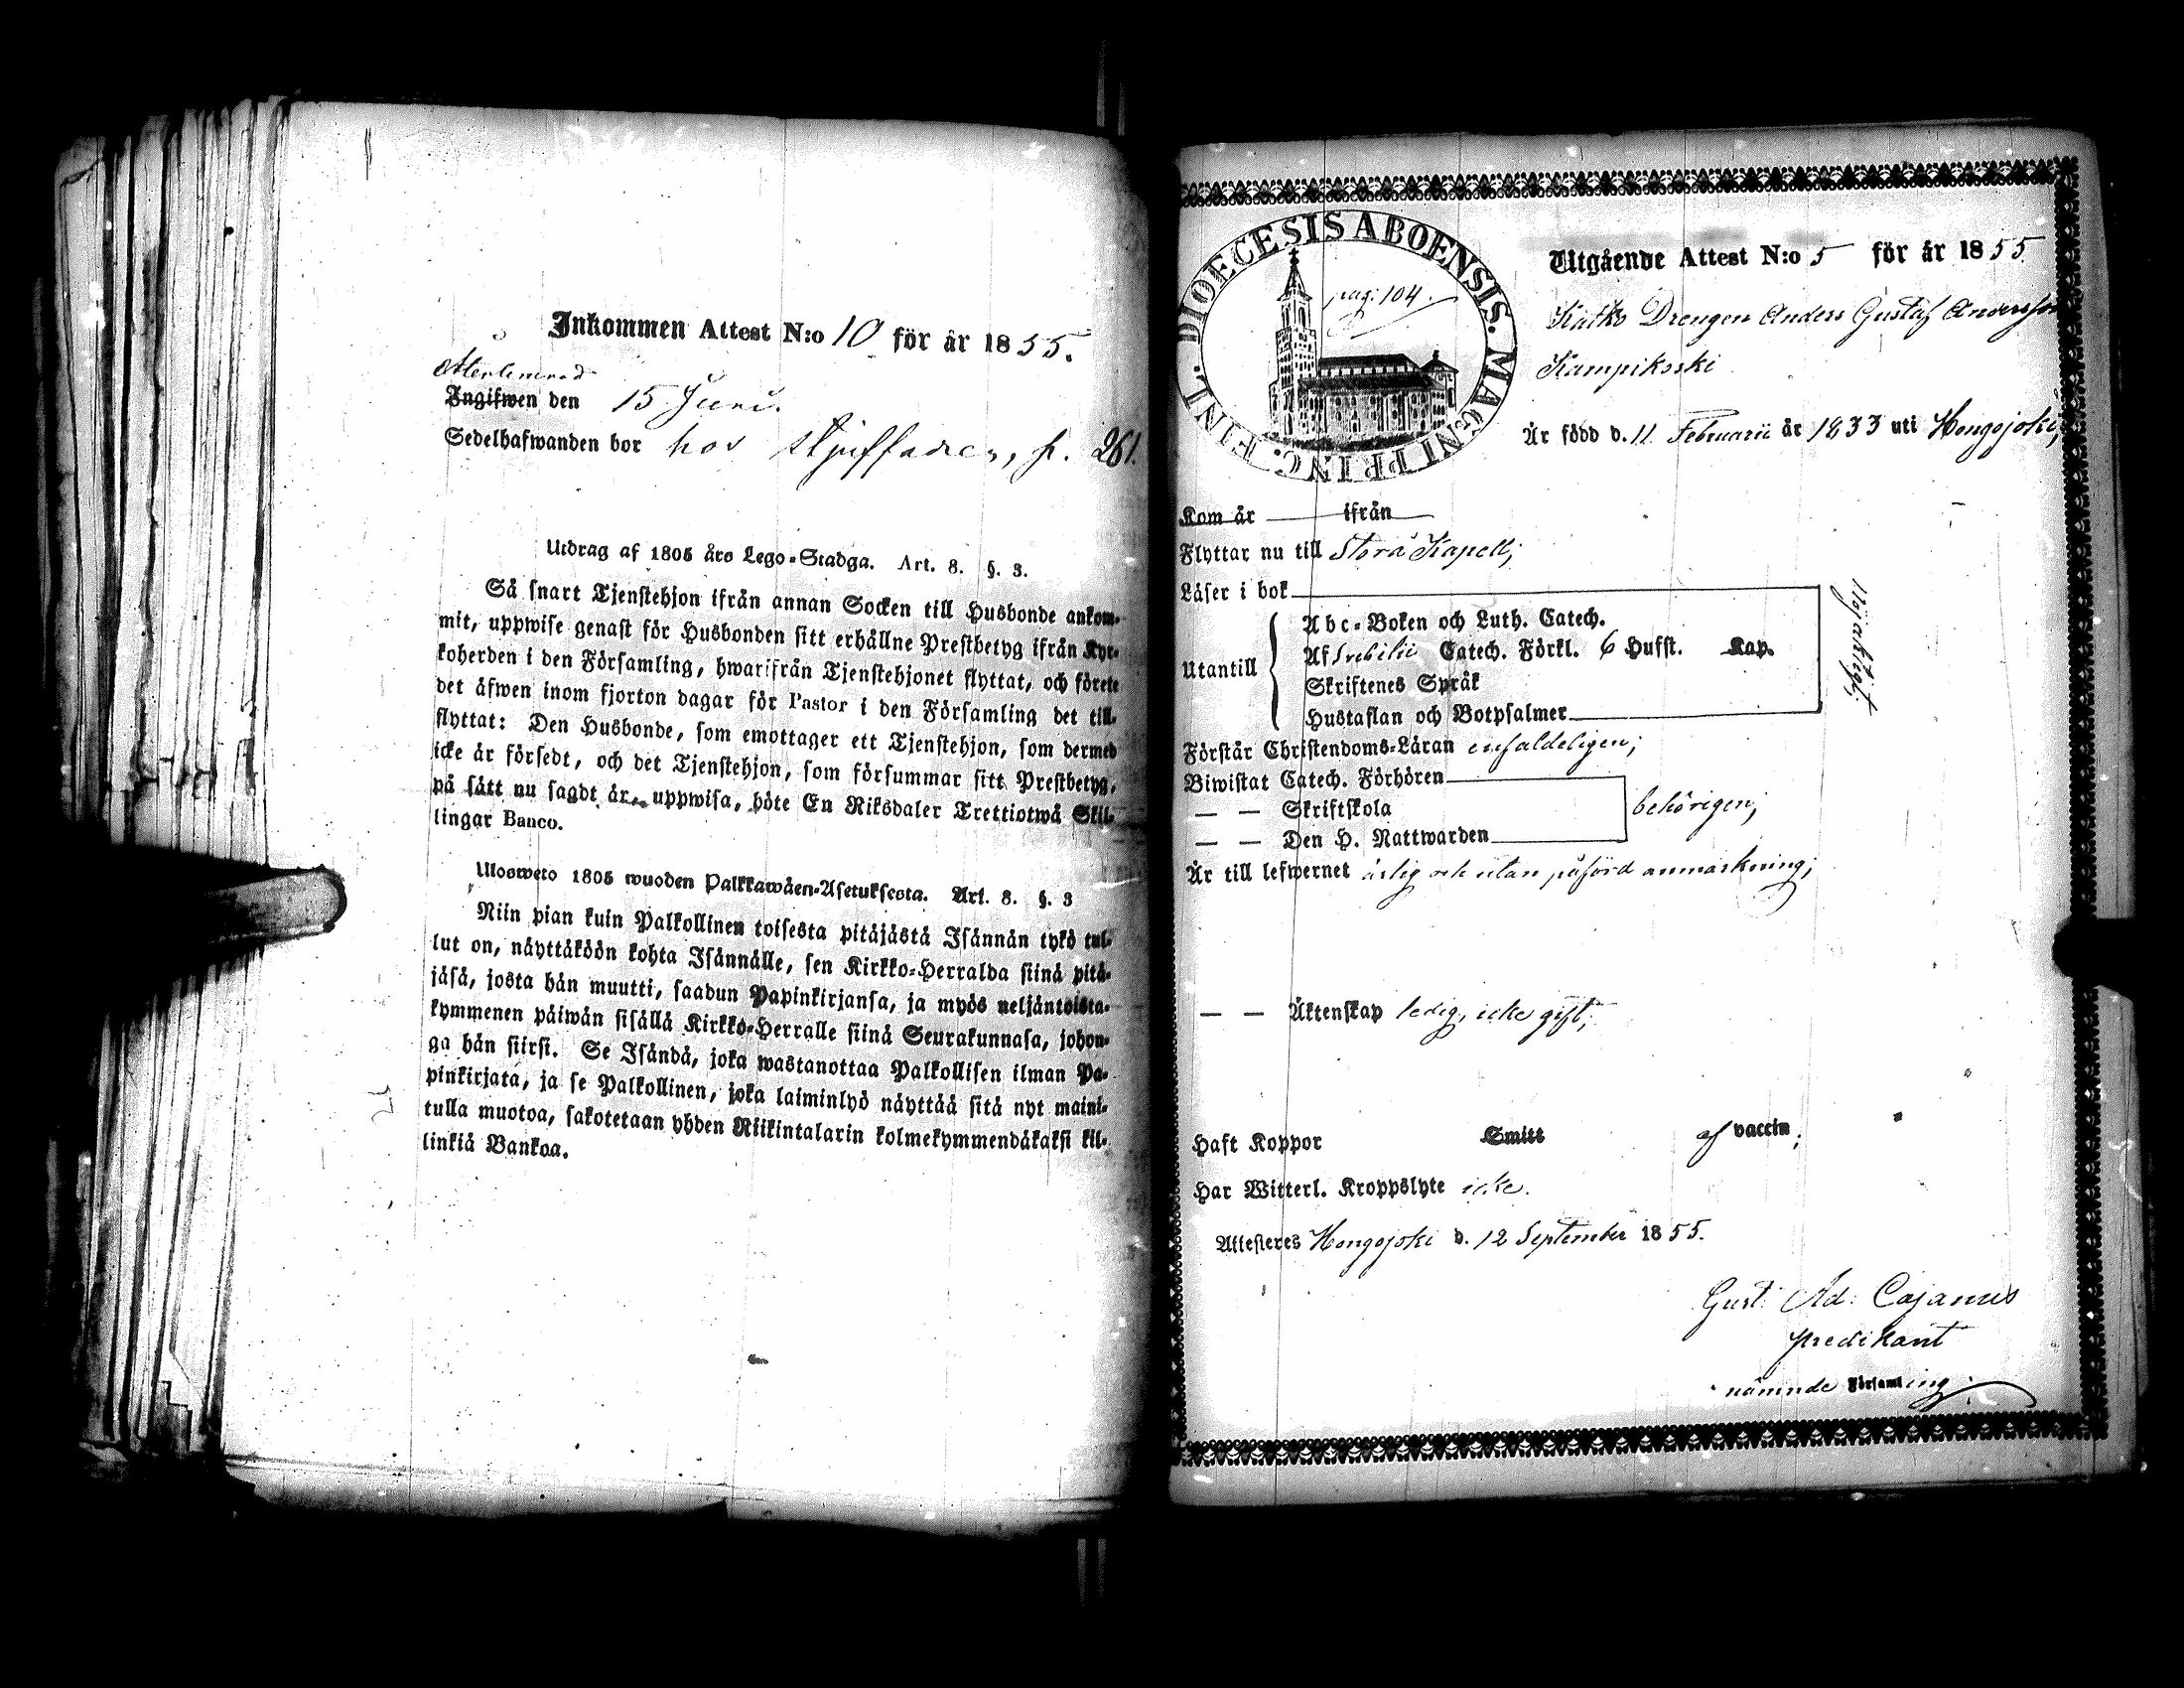 Inkommen Attest N:o 10 för år 1855.
Återlemnad
Ingifwen den 15 Juni.
Sedelhafwanden bor hos styffadren, p. 261.
Utdrag af 1805 års Lego-Stadga. Art. 8. §. 3.
Så snart Tjenstehjon ifrån annan Socken till Husbonde ankom-
mit, uppwise genast för Husbonden sitt erhållne Prestbetyg ifrån Kyr-
koherden i den Församling, hwarifrån Tjenstehjonet flyttat, och förete
det äfwen inom fjorton dagar för Pastor i den Församling det till-
flyttat: Den Husbonde, som emottager ett Tjenstehjon, som dermed
icke är försedt, och det Tjenstehjon, som försummar sitt Prestbetyg,
på sätt nu sagdt är, uppwisa, böte En Riksdaler Trettiotwå Skil-
lingar Banco.
Ulosweto 1805 wuoden Palkkawäen-Asetuksesta. Art. 8. §. 3
Niin pian kuin Palkollinen toisesta pitäjästä Isännän tykö tul-
lut on, näyttäköön kohta Isännälle, sen Kirkko-Herralda siinä pitä-
jäsä, josta hän muutti, saadun Papinkirjansa, ja myös neljäntoista-
kymmenen päiwän sisällä Kirkko-Herralle siinä Seurakunnasa, johon-
ga hän siirsi. Se Isändä, joka wastanottaa Palkollisen ilman Pa-
pinkirjata, ja se Palkollinen, joka laiminlyö näyttää sitä nyt maini-
tulla muotoa, sakotetaan yhden Riikintalarin kolmekymmendäkaksi kil-
linkiä Bankoa.
DIOECESIS ABOENSIS. MAGNI PRINC. FINL.
pag: 104.
Utgående Attest N:o 5 för år 1855
Drengen Anders Gustaf Andersson
Kampikoski
Är född d. 11 Februarii år 1833 uti Hongojoki;
Kom år ifrån
Flyttar nu till Storå Kapell;
Läser i bok
Abc-Boken och Luth. Catech.
Utantill Af Svebilii Catech. Förkl. 6 Hufst. Kap.
Skriftenes Språk
Hustaflan och Botpsalmer
Nöjaktigt;
Förstår Christendoms-Läran enfaldeligen;
Biwistat Catech. Förhören
— — Skriftskola behörigen;
— — Den H. Nattwarden
Är till lefwernet ärlig och utan påförd anmärkning;
— — Äktenskap ledig, icke gift;
Haft Koppor Smitt af vaccin;
Har Witterl. Kroppslyte icke.
Attesteres Hongojoki d. 12 September 1855.
Gust: Ad: Cajanus
predikant
nämnde Församling.